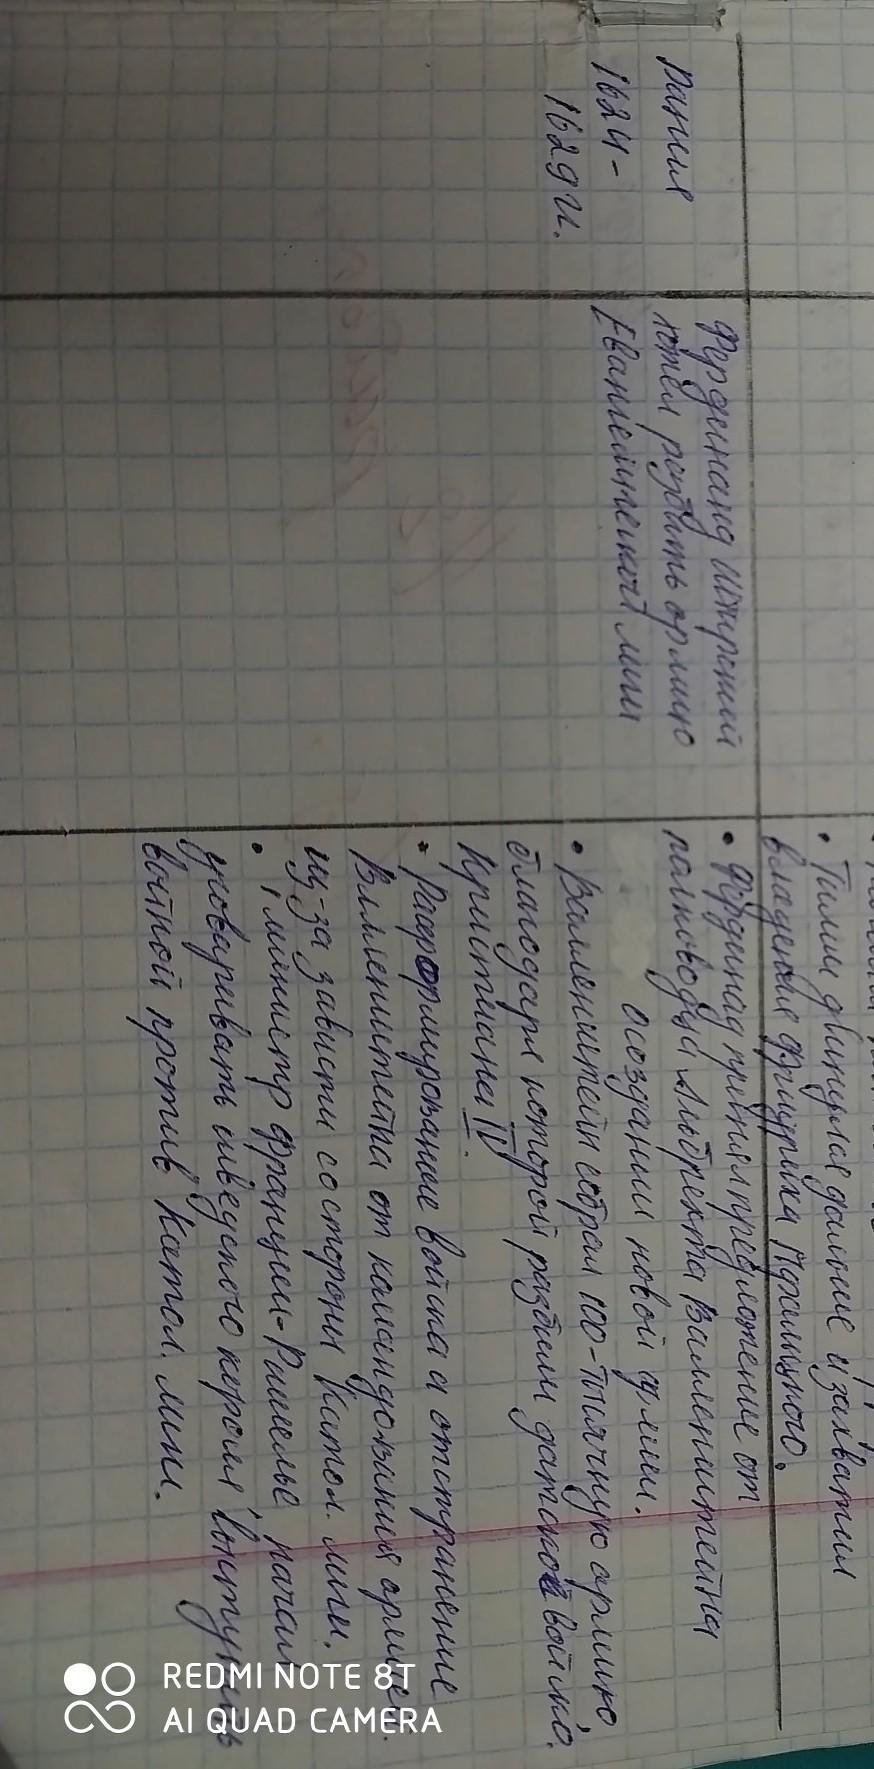 Тилли двинулся дальше и захватил
владения Фридриха Пфальцского.
Дания
1624-
1629 гг.
Фердинанд Штирский
хотел разбить армию
Евангелической лиги
• Фердинад принял предложение от
полководца Альбрехта Валленштейна
о создании новой армии.
• Валленштейн собрал 100-тысячную армию,
благодаря которой разбили датское войско.
Кристиана IV.
• Расформирование войска и отстранение
Валленштейна от командования армией.
из-за зависти со стороны Катол. лиги.
• министр Франции-Ришелье, начал
уговаривать шведского короля вступить
войной против Катол. лиги.
REDMI NOTE 8T
AI QUAD CAMERA